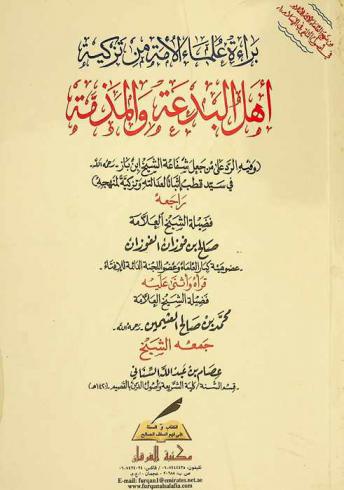 براءة علماء الأمة من تزكية
أهل البدعة والمذمة
وفيه الرد على من جعل شفاعة الشيخ ابن باز - رحمه الله -
في سيد قطب إثباتًا لعدالته وتزكية لمنهجه
راجعه
فضيلة الشيخ العلامة
صالح بن فوزان الفوزان
عضو هيئة كبار العلماء وعضو اللجنة الدائمة للإفتاء -
قرأه وأثنى عليه
فضيلة الشيخ العلامة
محمد بن صالح العثيمين - رحمه الله -
جمعه الشيخ
عصام بن عبد الله السناني
- قسم السنة / كلية الشريعة وأصول الدين بالقصيم -
الكتاب و السنة
على فهم السلف الصالح
مكتبة الفرقان
E-mail: furqan1@emirates.net.ae
www.furqanalsalafia.com